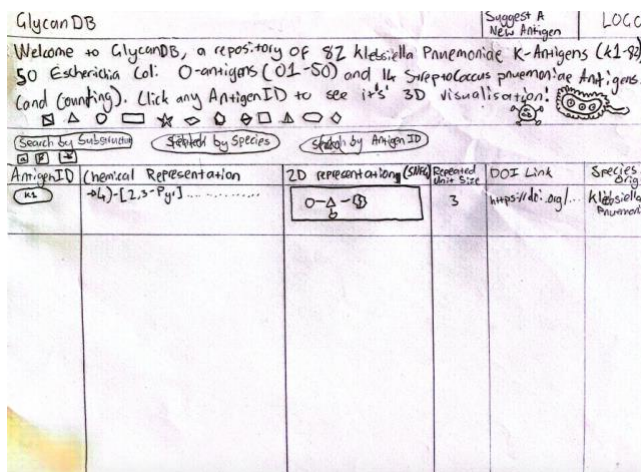 GlycanDB
Suggest A
New Antigen
LOGO
Welcome to GlycanDB, a repository of 82 klebsiella Pnuemoniae K-Antigens (k1-82)
50 Escherichia Coli O-antigens (O1-50) and 14 Streptococcus pnuemoniae Antigens
(and counting). Click any AntigenID to see it's' 3D visualisation!
Search by Substructur
Search by Species
Search by Antigen ID
AntigenID
Chemical Representation
2D representations (SNFG)
Repeated
Unit Size
DOI Link
Species
Orig
K1
→4)-[2,3-Pyr]...............
3
https://doi.org/...
Klebsiella
Pnuemoni